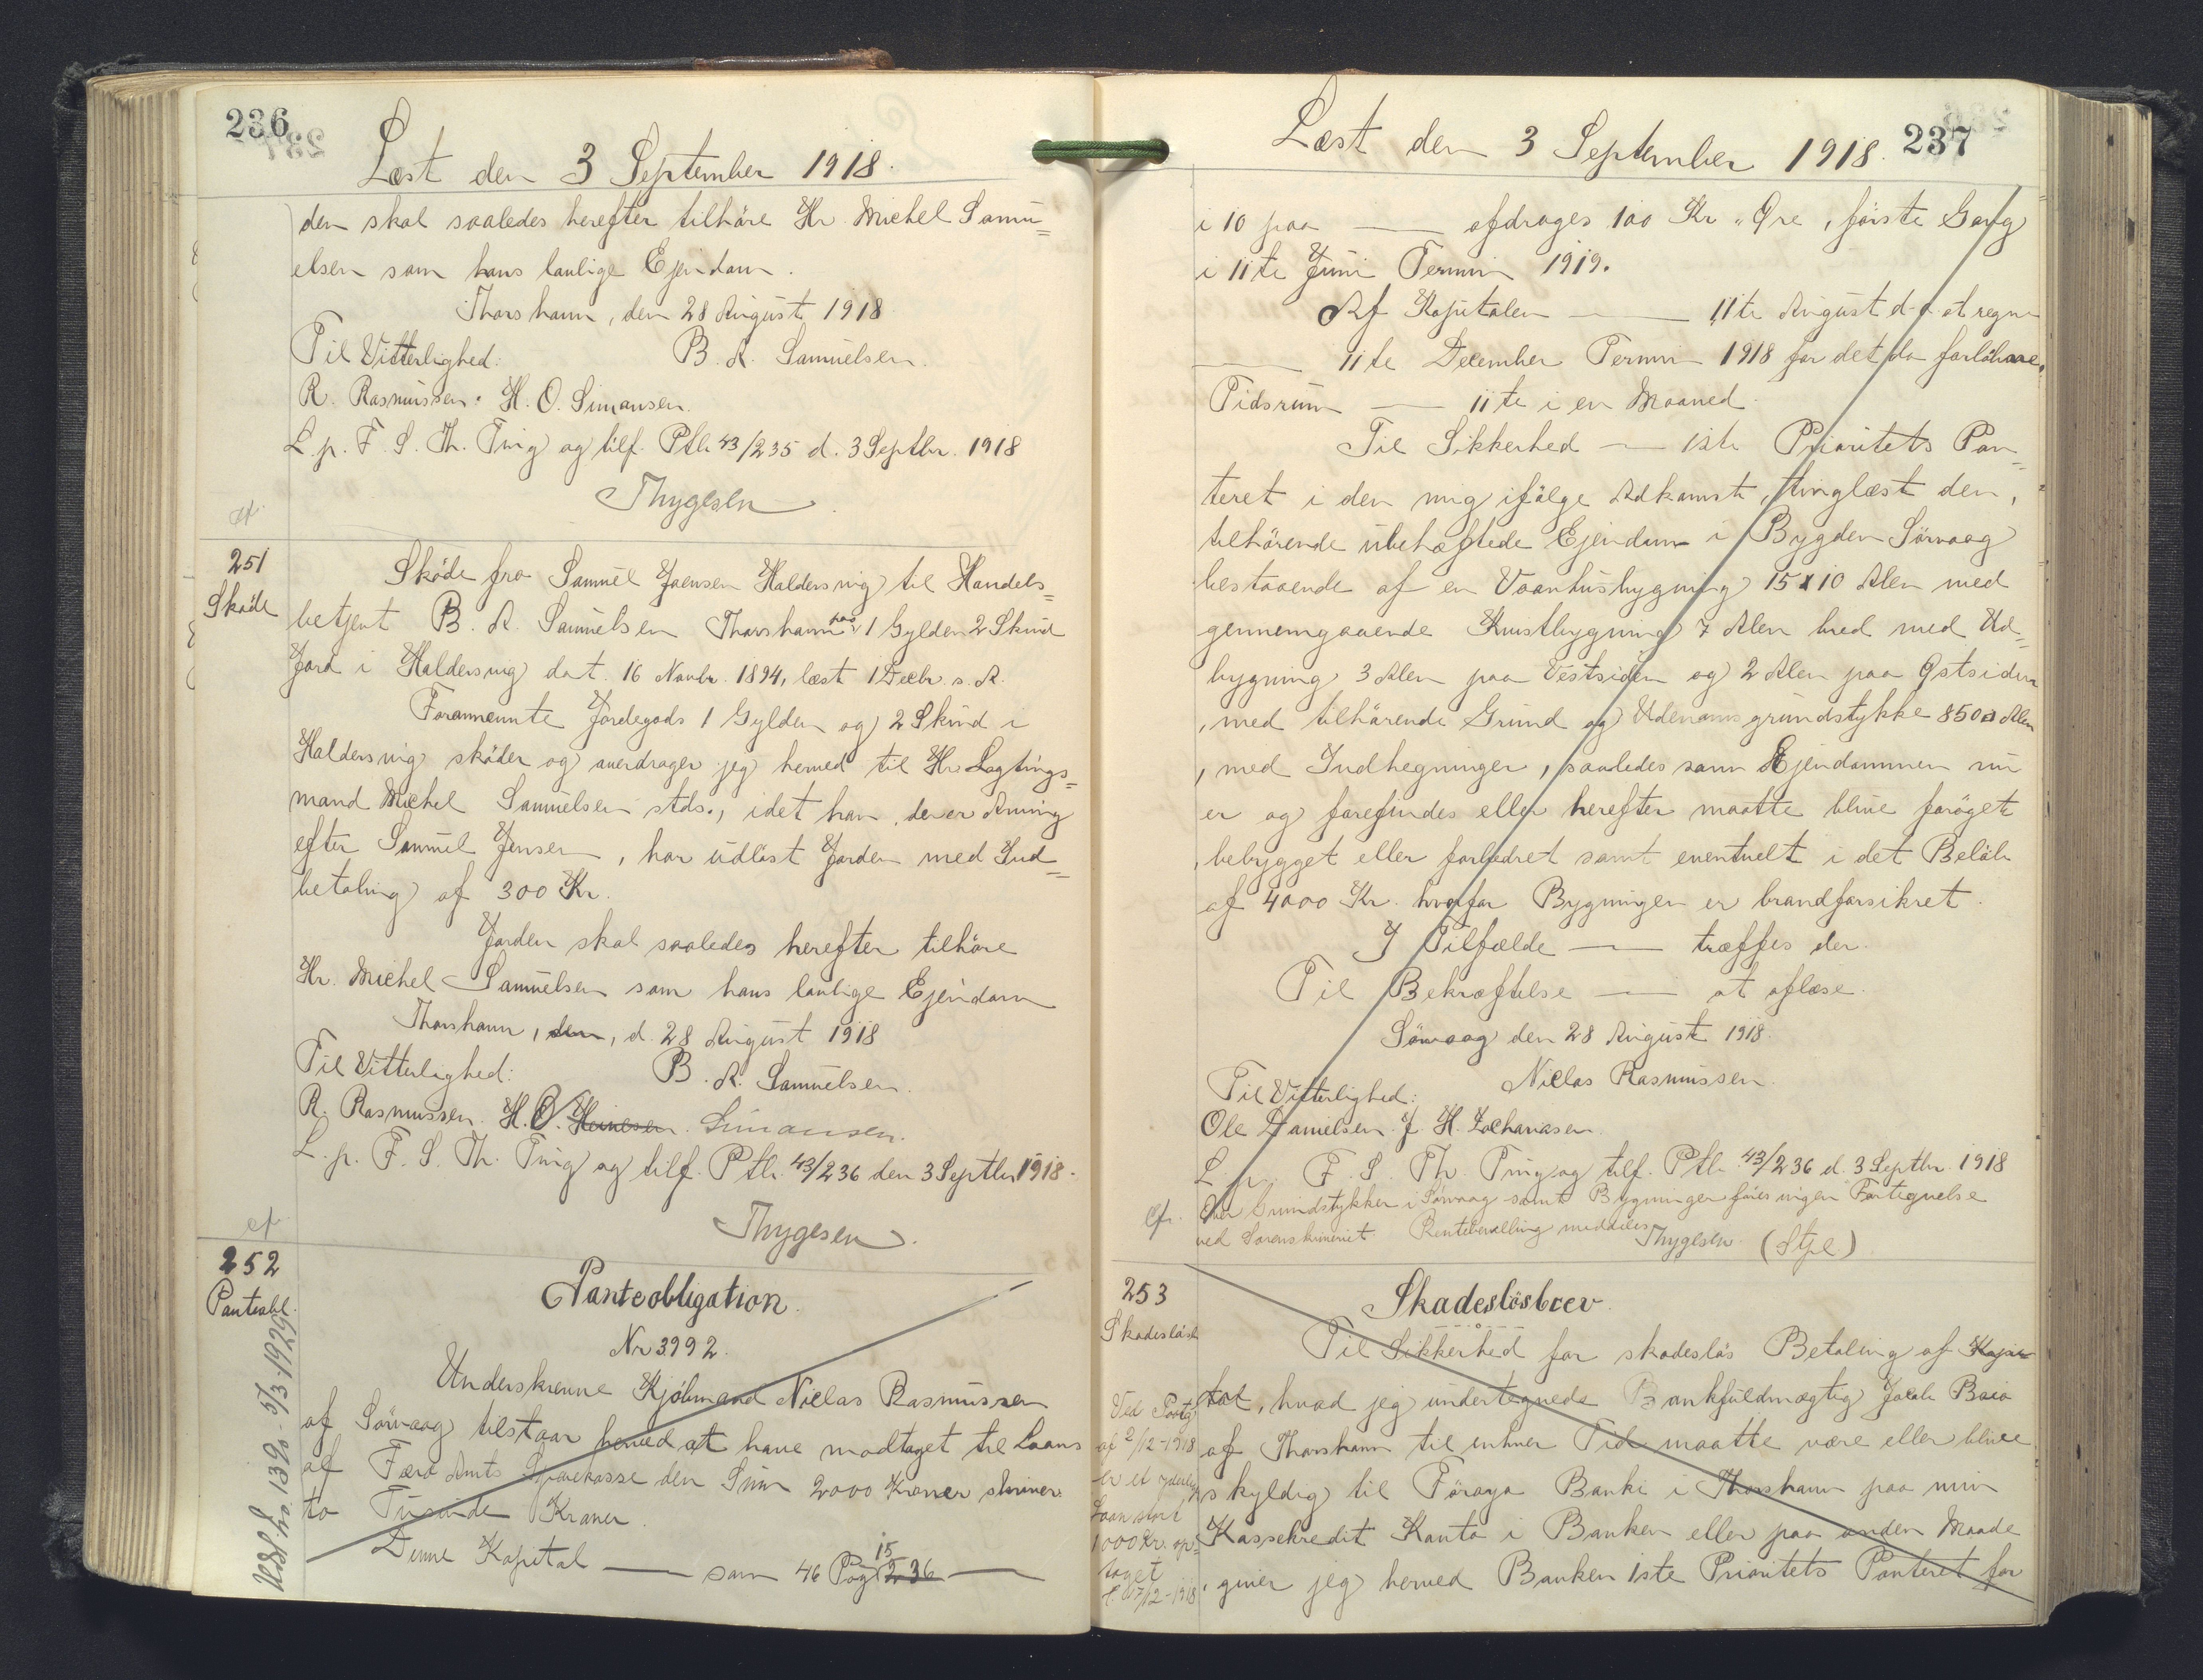 236
Læst den 3 September 1918.
den skal saaledes herefter tilhöre Hr. Michel Samu=
elsen som hans lovlige Ejendom.
Thorshavn, den 28 August 1918
Til Vitterlighed: B. A. Samuelsen.
R. Rasmussen. H. O. Simonsen.
L. p. F. S. Th. Ting og tilf. Ptb. 43/235 d. 3 Septbr. 1918
Thygesen
cf.
251
Sköde
Sköde fra Samuel Joensen Haldersvig til Handels=
betjent B. A. Samuelsen Thorshavn paa 1 Gylden 2 Skind
Jord i Haldersvig dat. 16 Novbr. 1894, læst 1 Decbr. s. A.
Forannevnte Jordegods 1 Gylden og 2 Skind i
Haldersvig sköder og overdrager jeg herved til Hr. Lagtings=
mand Michel Samuelsen stds., idet han, der er Arving
efter Samuel Jensen, har udlöst Jorden med Ind=
betaling af 300 Kr.
Jorden skal saaledes herefter tilhöre
Hr. Michel Samuelsen som hans lovlige Ejendom
Thorshavn, den, d. 28 August 1918
Til Vitterlighed: B. A. Samuelsen.
R. Rasmussen. H. O. Heinesen. Simonsen.
L. p. F. S. Th. Ting og tilf. Ptb. 43/236 den 3 Septbr 1918.
Thygesen
cf
252
Panteobl.
Panteobligation.
Nr 3992.
Underskrevne Kjöbmand Niclas Rasmussen
af Sörvaag tilstaar herved at have modtaget til Laans
af Færö Amts Sparekasse den Sum 2000 Kroner skriver
to Tusinde Kroner
Denne Kapital — som 46 Pag 15 236 —
Udsl. No. 1390 - 5/3-1929
237
Læst den 3 September 1918.
i 10 paa — afdrages 100 Kr „ Øre, förste Gang
i 11te Juni Termin 1919.
Af Kapitalen — 11te August d. A at regne
— 11te December Termin 1918 for det da forløbne
Tidsrum — 11te i en Maaned.
Til Sikkerhed — 1ste Prioritets Pan=
teret i den mig ifölge Adkomst, tinglæst den,
tilhörende ubehæftede Ejendom i Bygden Sörvaag
bestaaende af en Vaanhusbygning 15 x 10 Alen med
gennemgaaende Kvistbygning 7 Alen bred med Ud=
bygning 3 Alen paa Vestsiden og 2 Alen paa Østsiden
, med tilhörende Grund og Udenomsgrundstykke 850 □ Alen
, med Indhegninger, saaledes som Ejendommen nu
er og forefindes eller herefter maatte blive foröget
, bebygget eller forbedret samt eventuelt i det Belöb
af 4000 Kr. hvorfor Bygningen er brandforsikret.
I Tilfælde — træffes der.
Til Bekræftelse — at aflæse.
Sörvaag den 28 August 1918.
Til Vitterlighed: Niclas Rasmussen.
Ole Danielsen. J. H. Zachariasen.
L. p. F. S. Th. Ting og tilf. Ptb. 43/236 d. 3 Septbr. 1918
cfr. Over Grundstykker i Sörvaag samt Bygninger föres ingen Fortegnelse
ved Sorenskriveriet. Rentebevilling meddeles Thygesen (Stpl)
253
Skadeslösb
Skadeslösbrev.
Til Sikkerhed for skadeslös Betaling af Kapi
tal, hvad jeg undertegnede Bankfuldmægtig Jacob
af Thorshavn til enhver Tid maatte være eller blive
skyldig til Föroya Banki i Thorshavn paa min
Kassekredit Konto i Banken eller paa anden Maade
, giver jeg herved Banken 1ste Prioritets Panteret for
Ved Paatg
af 2/12-1918
er et yderlig
Laan stort
1000 Kr. op=
taget